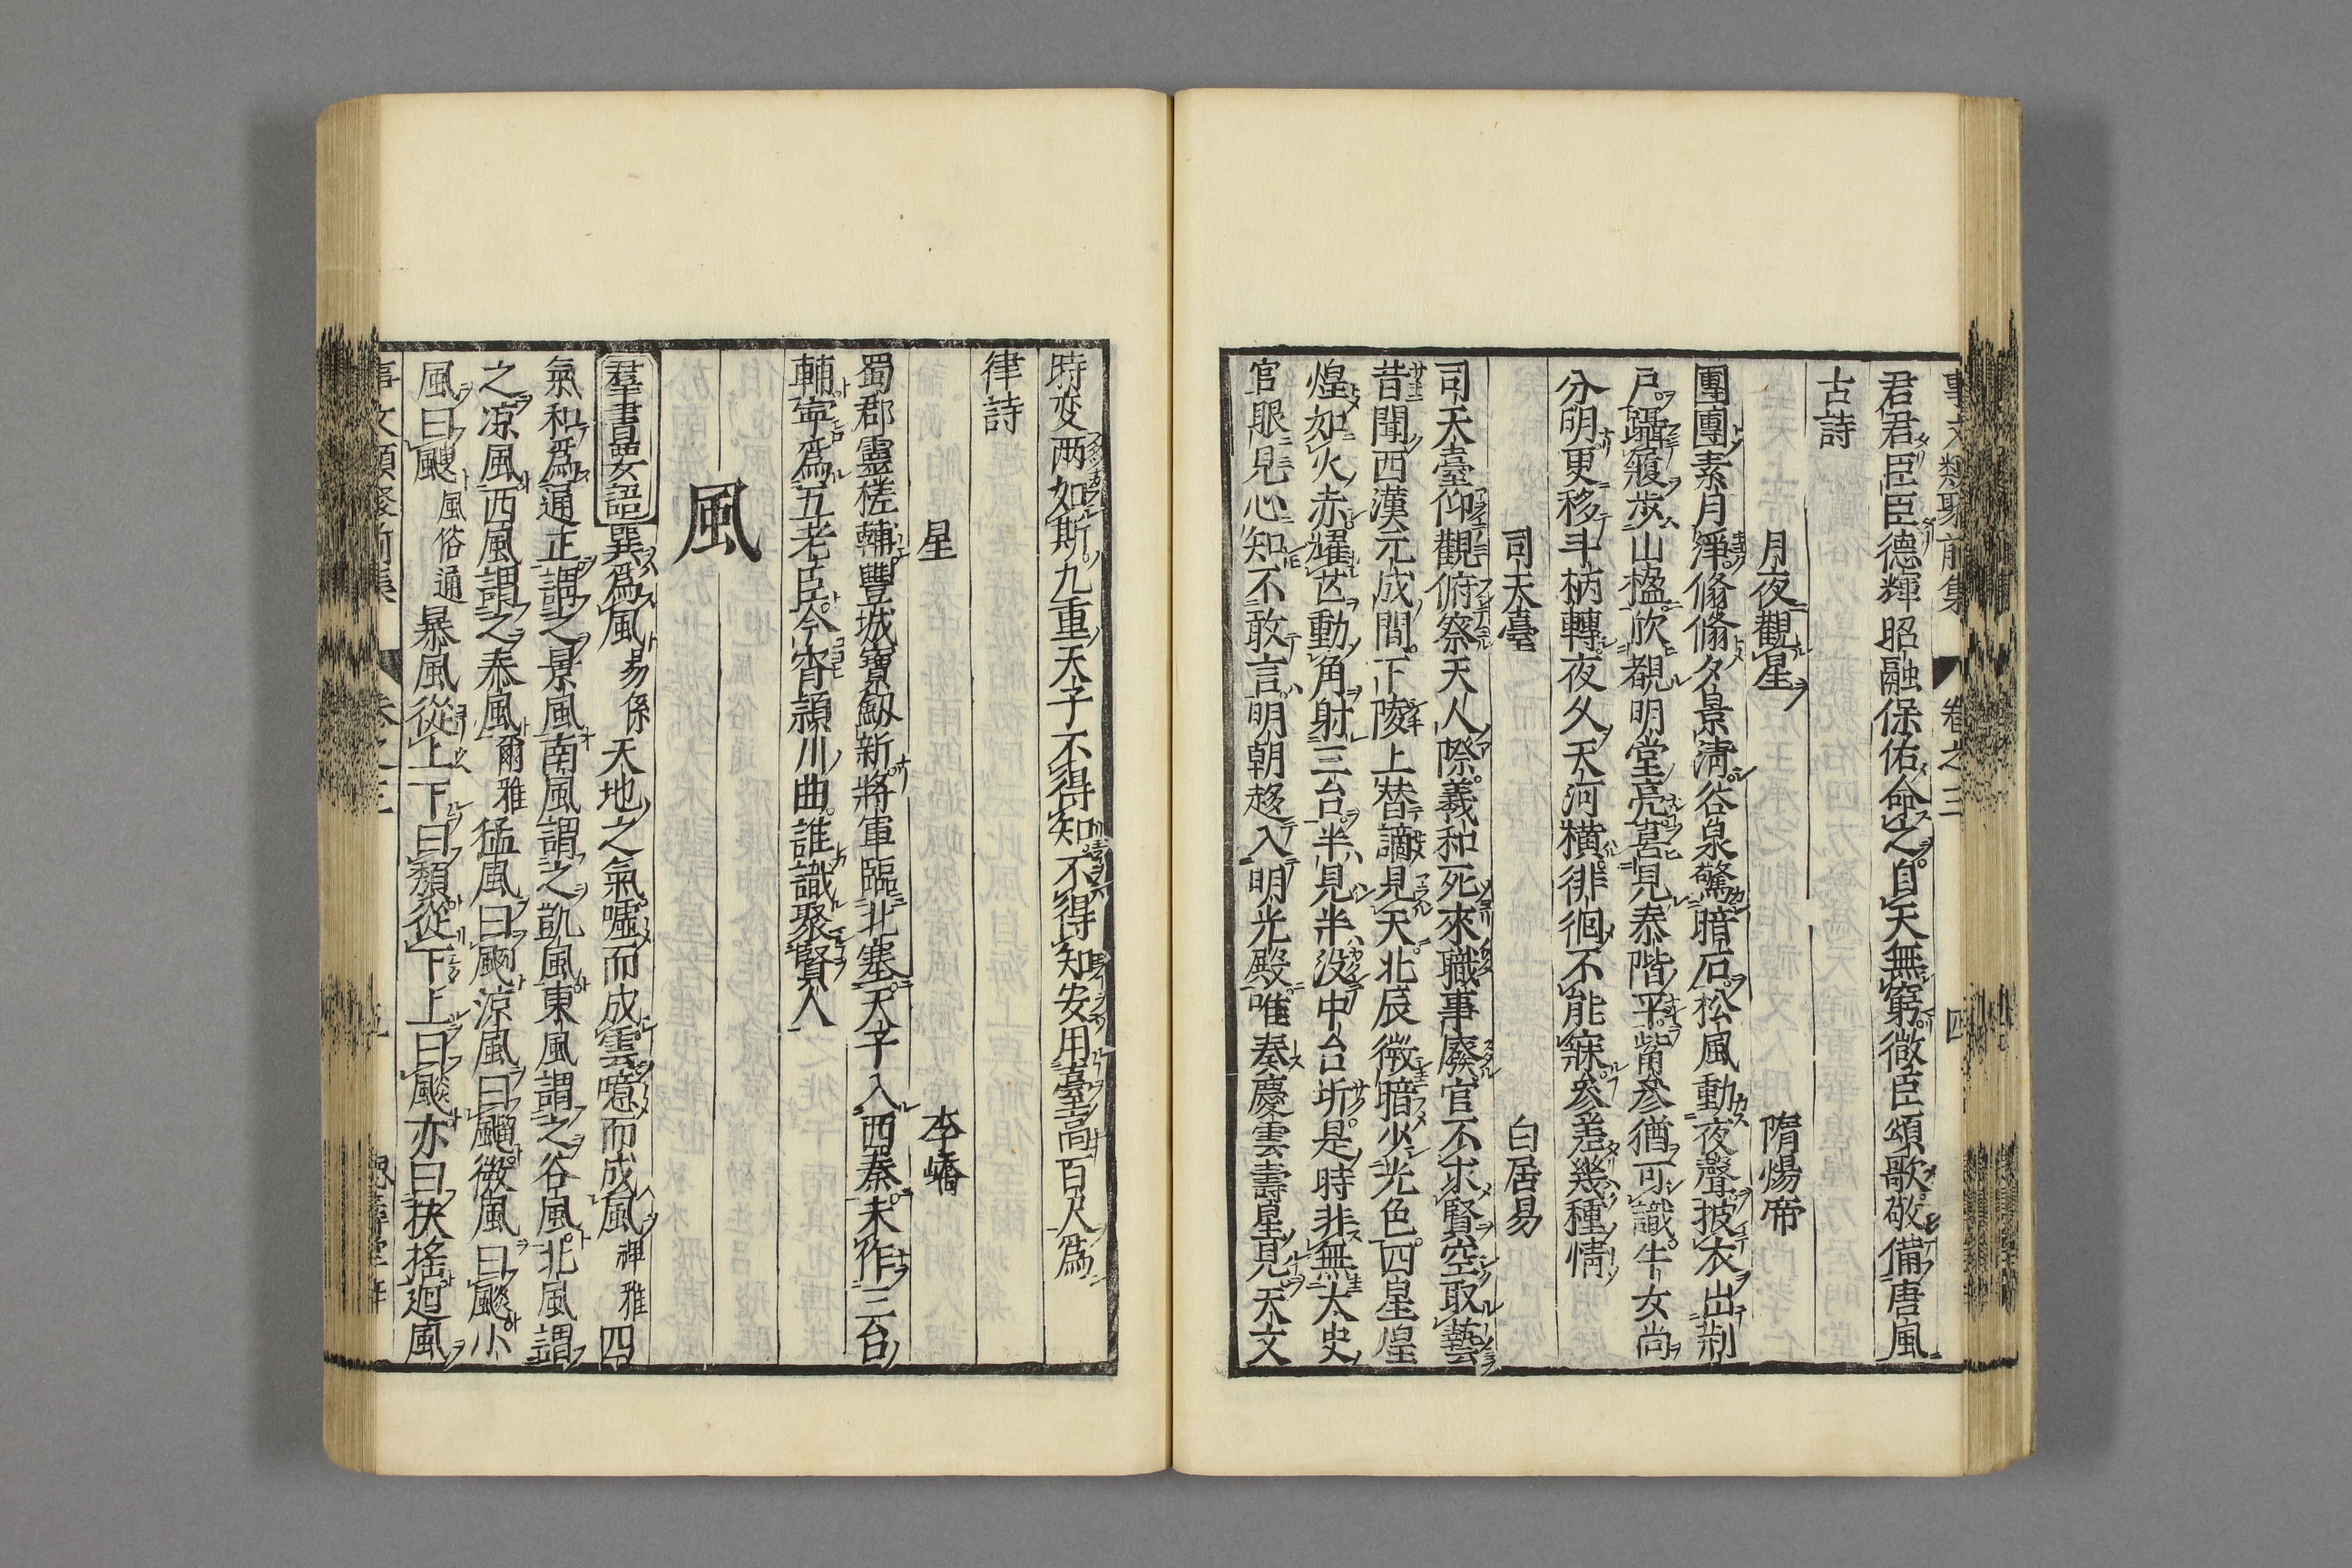 事文類聚前集 卷之三 四
君君臣臣德輝昭融保佑命之自天無窮微臣頌歌敬備唐風
古詩
月夜觀星 隋煬帝
團團素月淨翛翛夕景清谷泉驚暗石松風動夜聲披衣出荊
戸躡履歩山楹欣覩明堂亮喜見泰階平觜參猶可識牛女尚
分明更移斗柄轉夜久天河橫徘徊不能寐參差幾種情
司天臺 白居易
司天臺仰觀俯察天人際羲和死來職事廢官不求賢空取藝
昔聞西漢元成間下陵上替謫見天北辰微暗少光色四星煌
煌如火赤耀芒動角射三台半見半没中台坼是時非無太史
官眼見心知不敢言明朝趍入明光殿唯奏慶雲壽星見天文
時変两如斯九重天子不得知不得知安用臺高百尺為
律詩
星 李嶠
蜀郡靈槎轉豐城寶劒新將軍臨北塞天子入西秦未作三台
輔寧爲五老臣今宵頴川曲誰識聚賢人
風
羣書要語巽爲風易係天地之氣噓而成雲噫而成風禆雅四
氣和爲通正謂之景風南風謂之凱風東風謂之谷風北風謂
之凉風西風謂之泰風爾雅猛風曰颲涼風曰飀微風曰飈小
風曰颼風俗通暴風從上下曰頽從下上曰飈亦曰扶搖廻風